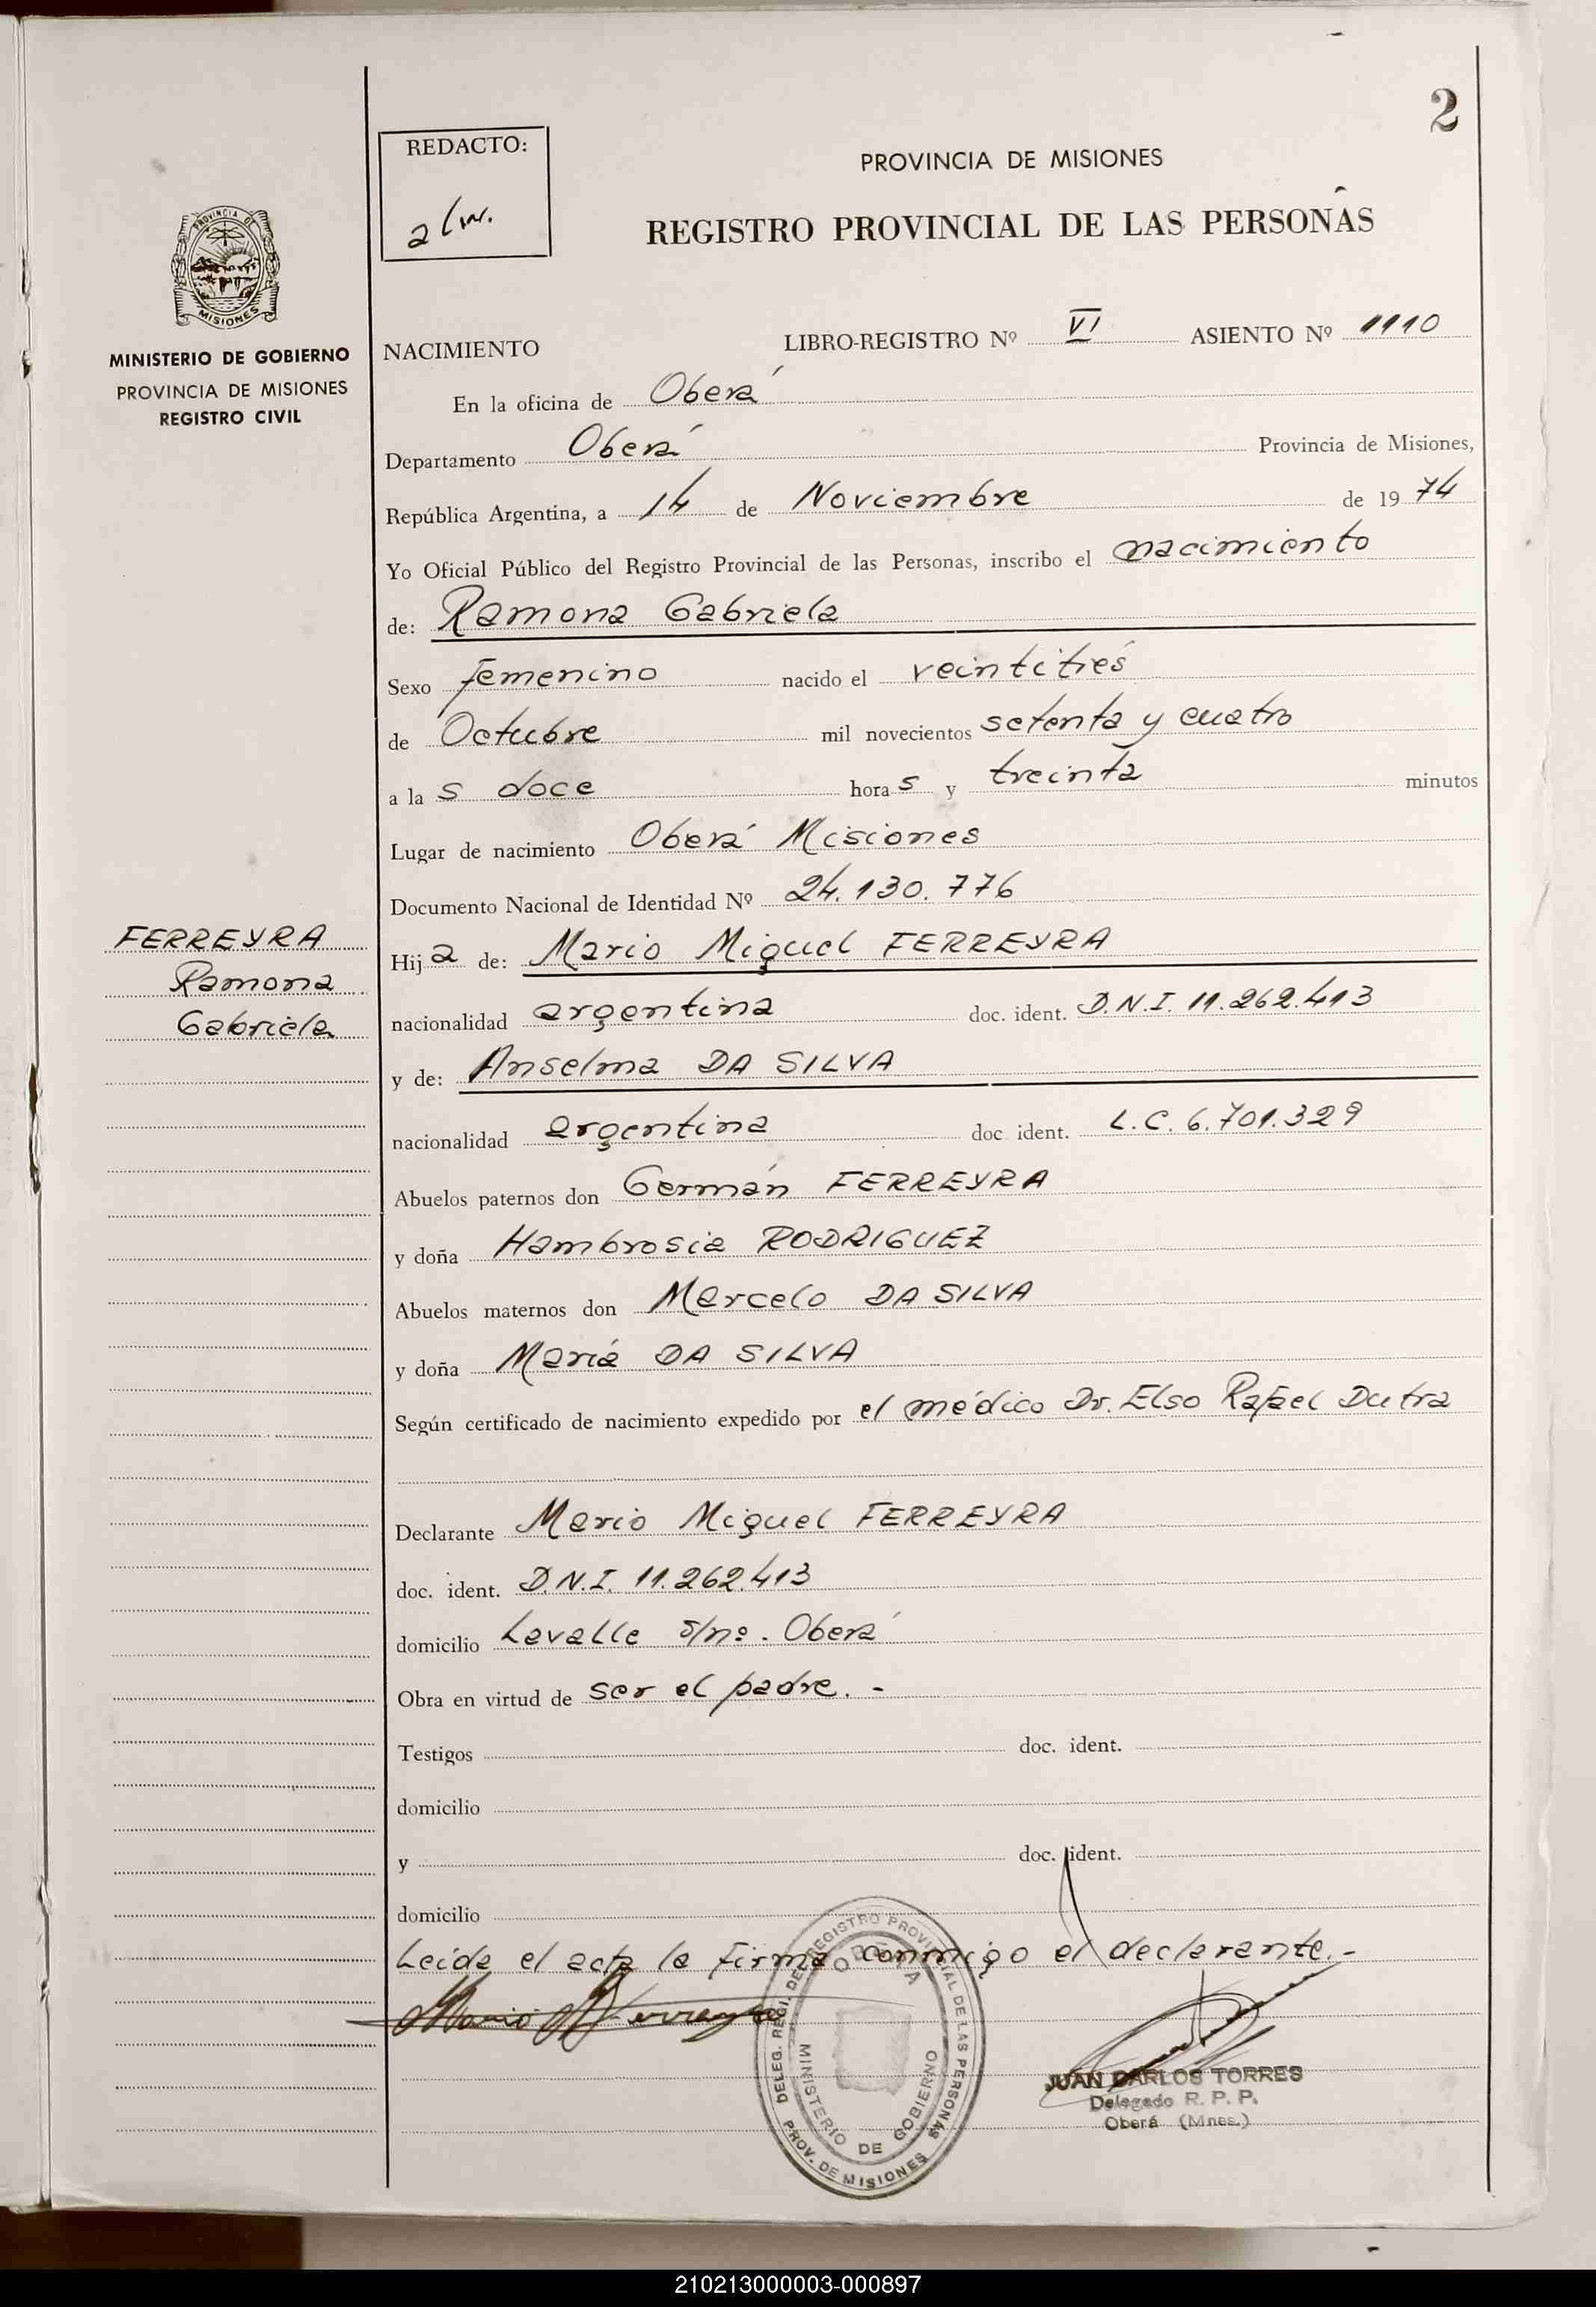 2
REDACTO:
PROVINCIA DE MISIONES
REGISTRO PROVINCIAL DE LAS PERSONAS
PROVINCIA DE
MISIONES
MINISTERIO DE GOBIERNO
PROVINCIA DE MISIONES
REGISTRO CIVIL
NACIMIENTO LIBRO-REGISTRO Nº VI ASIENTO Nº 1110
En la oficina de Oberá
Departamento Oberá Provincia de Misiones,
República Argentina, a 14 de Noviembre de 1974
Yo Oficial Público del Registro Provincial de las Personas, inscribo el nacimiento
de: Ramona Gabriela
Sexo femenino nacido el veintitrés
de Octubre mil novecientos setenta y cuatro
a la s doce hora s y treinta minutos
Lugar de nacimiento Oberá Misiones
Documento Nacional de Identidad Nº 24.130.776
FERREYRA
Ramona
Gabriela
Hija de: Mario Miguel FERREYRA
nacionalidad argentina doc. ident. D.N.I. 11.262.413
y de: Anselma DA SILVA
nacionalidad argentina doc ident. L.C. 6.701.329
Abuelos paternos don Germán FERREYRA
y doña Hambrosia RODRIGUEZ
Abuelos maternos don Marcelo DA SILVA
y doña María DA SILVA
Según certificado de nacimiento expedido por el médico Dr. Elso Rafael Dutra
Declarante Mario Miguel FERREYRA
doc. ident. D.N.I. 11.262.413
domicilio Lavalle s/nº. Oberá
Obra en virtud de ser el padre. -
Testigos doc. ident.
domicilio
y doc. ident.
domicilio
Leida el acta la firma conmigo el declarante.-
DELEG. REGI. DEL REGISTRO PROVINCIAL DE LAS PERSONAS
MINISTERIO DE GOBIERNO
PROV. DE MISIONES
JUAN CARLOS TORRES
Delegado R. P. P.
Oberá (Mnes.)
210213000003-000897